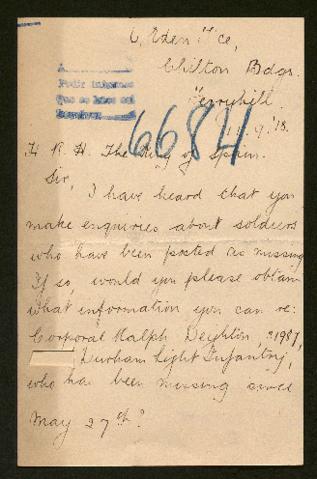 6, Eden Tce,
Chilton Bdgs.
Ferryhill.
11.9.'18.
6684
H R H. The King of Spain.
Sir, I have heard that you
make enquiries about soldiers
who have been posted as missing
If so, would you please obtain
what information you can re:
Corporal Ralph Deighton,
Durham Light Infantry,
who has been missing since
May 27th?